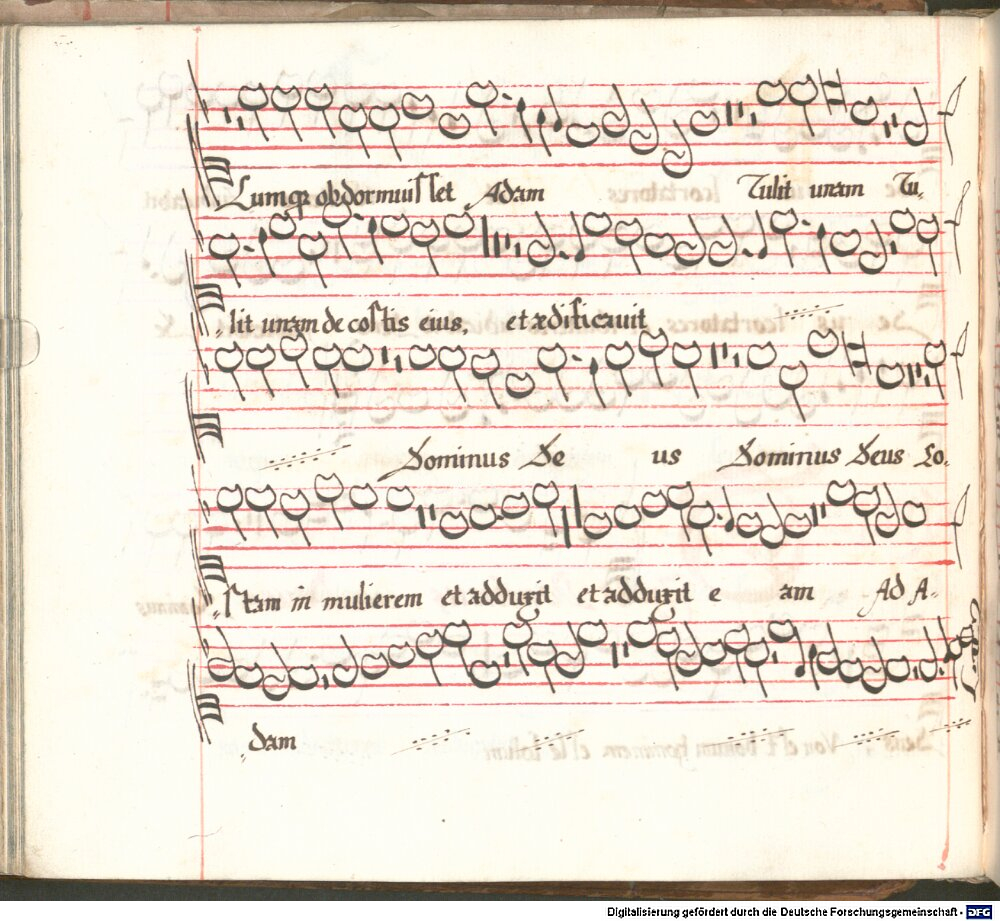 Cumqȝ obdormuisset Adam Tulit unam Tu-
lit unam de costis eius, et ædificauit
Dominus De us Dominus Deus Co-
stam in mulierem et adduxit et adduxit e am Ad A-
dam
Digitalisierung gefördert durch die Deutsche Forschungsgemeinschaft - DFG